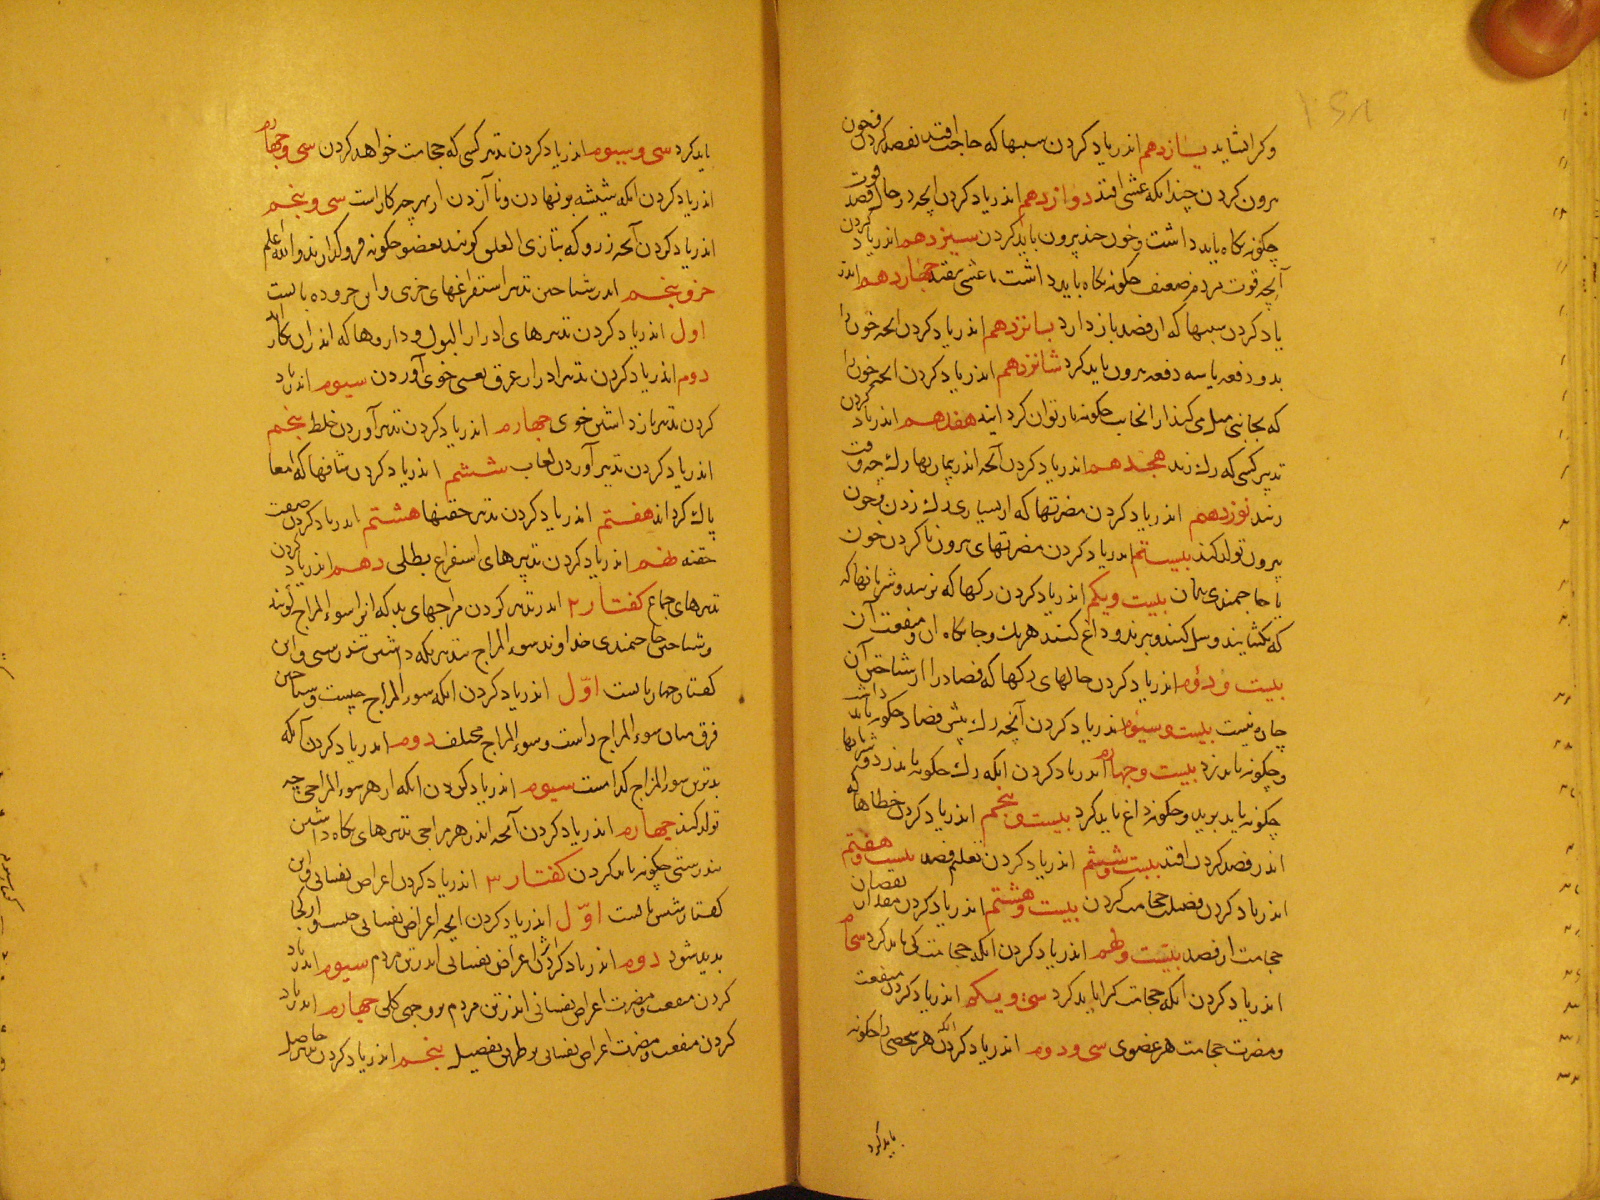 وکرا نشاید یازدهم اندر یاد کردن سببها که حاجت افتد بفصد کردن و خون
برون کردن چندانکه غشی افتد دوازدهم اندر یاد کردن آنچه در حال فصد قوت
چکونه نکاه باید داشت و خون چند برون باید کردن سیزدهم اندر یاد کردن
آنچه قوت مردم ضعیف چکونه نکاه باید داشت تا غشی نیفتد چهاردهم اندر
یاد کردن سببها که از فصد باز دارد پانزدهم اندر یاد کردن آنچه خون را
بدو دفعه یا سه دفعه برون باید کرد شانزدهم اندر یاد کردن آنچه خون را
که بجانبی میل می کند از انجانب چکونه باز توان کردانید هفدهم اندر یاد کردن
تدبیر کسی که رک زند هجدهم اندر یاد کردن آنچه اندر بیماریها رک چه وقت
زنند نوزدهم اندر یاد کردن مضرتها که از بسیاری رک زدن و خون
برون تولد کند بیستم اندر یاد کردن مضرتهای برون ناکردن خون
با حاجتمندی بدان بیست و یکم اندر یاد کردن رکها که بزنند و شریانها که
که بکشایند و سل کنند و ببرند و داغ کنند هر یک و جایکاه آن و منفعت آن
بیست و دوم اندر یاد کردن حالهای رکها که فصاد را از شناختن آن
چاره نیست بیست و سیوم اندر یاد کردن آنچه رک پیش فصاد چکونه باید داشت
و چکونه باید زد بیست و چهارم اندر یاد کردن آنکه رک چکونه باید زد و شریانها
چکونه باید برید و چکونه داغ باید کرد بیست و پنجم اندر یاد کردن خطاها که
اندر فصد کردن افتد بیست و ششم اندر یاد کردن تعلیم فصد بیست و هفتم
اندر یاد کردن فضل حجامت کردن بیست و هشتم اندر یاد کردن مقدار نقصان
حجامت از فصد بیست و نهم اندر یاد کردن آنکه حجامت کی باید کرد سی ام
اندر یاد کردن آنکه حجامت کرا باید کرد سی و یکم اندر یاد کردن منفعت
و مضرت حجامت هر عضوی سی و دوم اندر یاد کردن آنکه هر شخصی را چکونه
باید کرد
باید کرد سی و سیوم اندر یاد کردن تدبیر کسی که حجامت خواهد کردن سی و چهارم
اندر یاد کردن آنکه شیشه بر نهادن و نا آزدن از بهر چه کار است سی و پنجم
اندر یاد کردن آنچه زرو که بتازی العلق کویند بعضو چکونه فرو کذارند والله اعلم
جزو پنجم اندر شناختن تدبیر استفراغهای جزوی و این جزو ده باب است
اول اندر یاد کردن تدبیرهای ادرار البول و داروها که اندران بکار آید
دوم اندر یاد کردن تدبیر ادرار عرق یعنی خوی آوردن سیوم اندر یاد
کردن تدبیر باز داشتن خوی چهارم اندر یاد کردن تدبیر آوردن خلط پنجم
اندر یاد کردن تدبیر آوردن لعاب ششم اندر یاد کردن شافها که امعا
پاک کرداند هفتم اندر یاد کردن تدبیر حقنها هشتم اندر یاد کردن صفت
حقنه نهم اندر یاد کردن تدبیرهای استفراغ بطلی دهم اندر یاد کردن
تدبیرهای جماع کفتار ۲ اندر تدبیر کردن مزاجهای بد که انرا سوء المزاج کویند
و شناختن حاجتمندی خداوند سوء المزاج بتدبیر نکه داشتن تندرستی و این
کفتار چهار باب است اوّل اندر یاد کردن آنکه سوء المزاج چیست و شناختن
فرق میان سوء المزاج راست و سوء المزاج مختلف دوم اندر یاد کردن آنکه
بدترین سوء المزاج کدام است سیوم اندر یاد کردن آنکه از هر سوء المزاجی چه
تولد کند چهارم اندر یاد کردن آنچه اندر هر مزاجی تدبیرهای نکاه داشتن
تندرستی چکونه باید کردن کفتار ۳ اندر یاد کردن اعراض نفسانی و این
کفتار شش باب است اوّل اندر یاد کردن آنچه اعراض نفسانی چیست و از کجا
پدید شود دوم اندر یاد کردن اثر اعراض نفسانی اندر تن مردم سیوم اندر یاد
کردن منفعت و مضرت اعراض نفسانی اندر تن مردم بر وجهی کلی چهارم اندر یاد
کردن منفعت و مضرت اعراض نفسانی بر طریق تفصیل پنجم اندر یاد کردن تدبیر حاصل